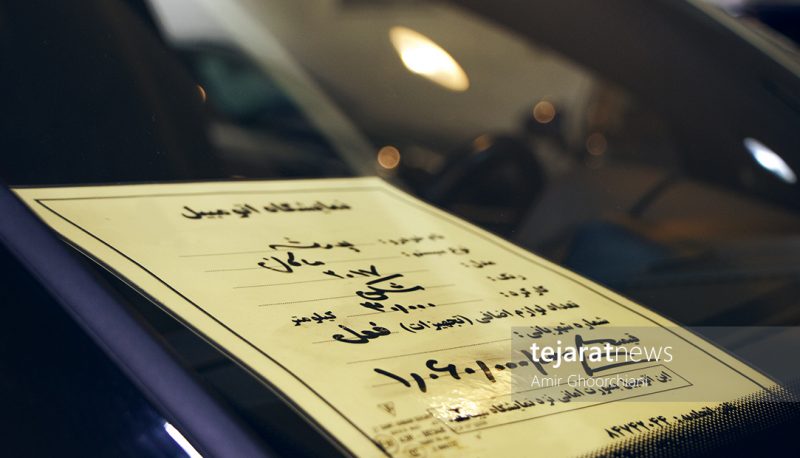 نمایشگاه اتومبیل
نام خودرو : پورشه
نوع سیستم : ماکان
مدل : ۲۰۱۷
رنگ : مشکی
کارکرد : ۳۰/۰۰۰ کیلومتر
تعداد لوازم اضافی (تجهیزات) فعلی
شماره شهربانی :
قیمت
۱/۰۶۰/۰۰۰/
این
نزد نمایشگاه
۸۴۷۴۲۰۴۴
tejaratnews
Amir Ghoorchiani